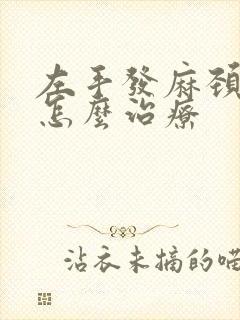 左手發麻頸
怎麼治療
沾衣未摘的喵